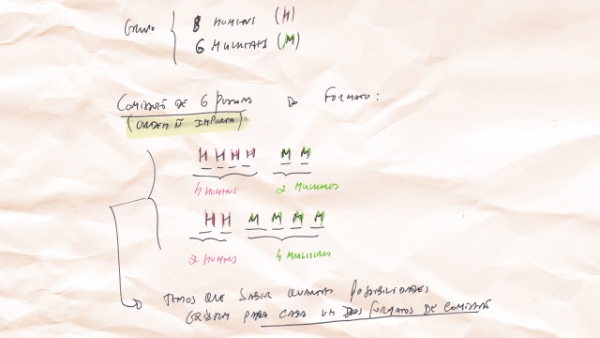 Grupo 8 Homens (H)
6 Mulheres (M)
Comissões de 6 pessoas → Formato:
(ordem ñ importa)
H H H H M M
4 Homens 2 Mulheres
H H M M M M
2 Homens 4 Mulheres
Temos que saber quantas possibilidades
existem para cada um dos formatos de comissão